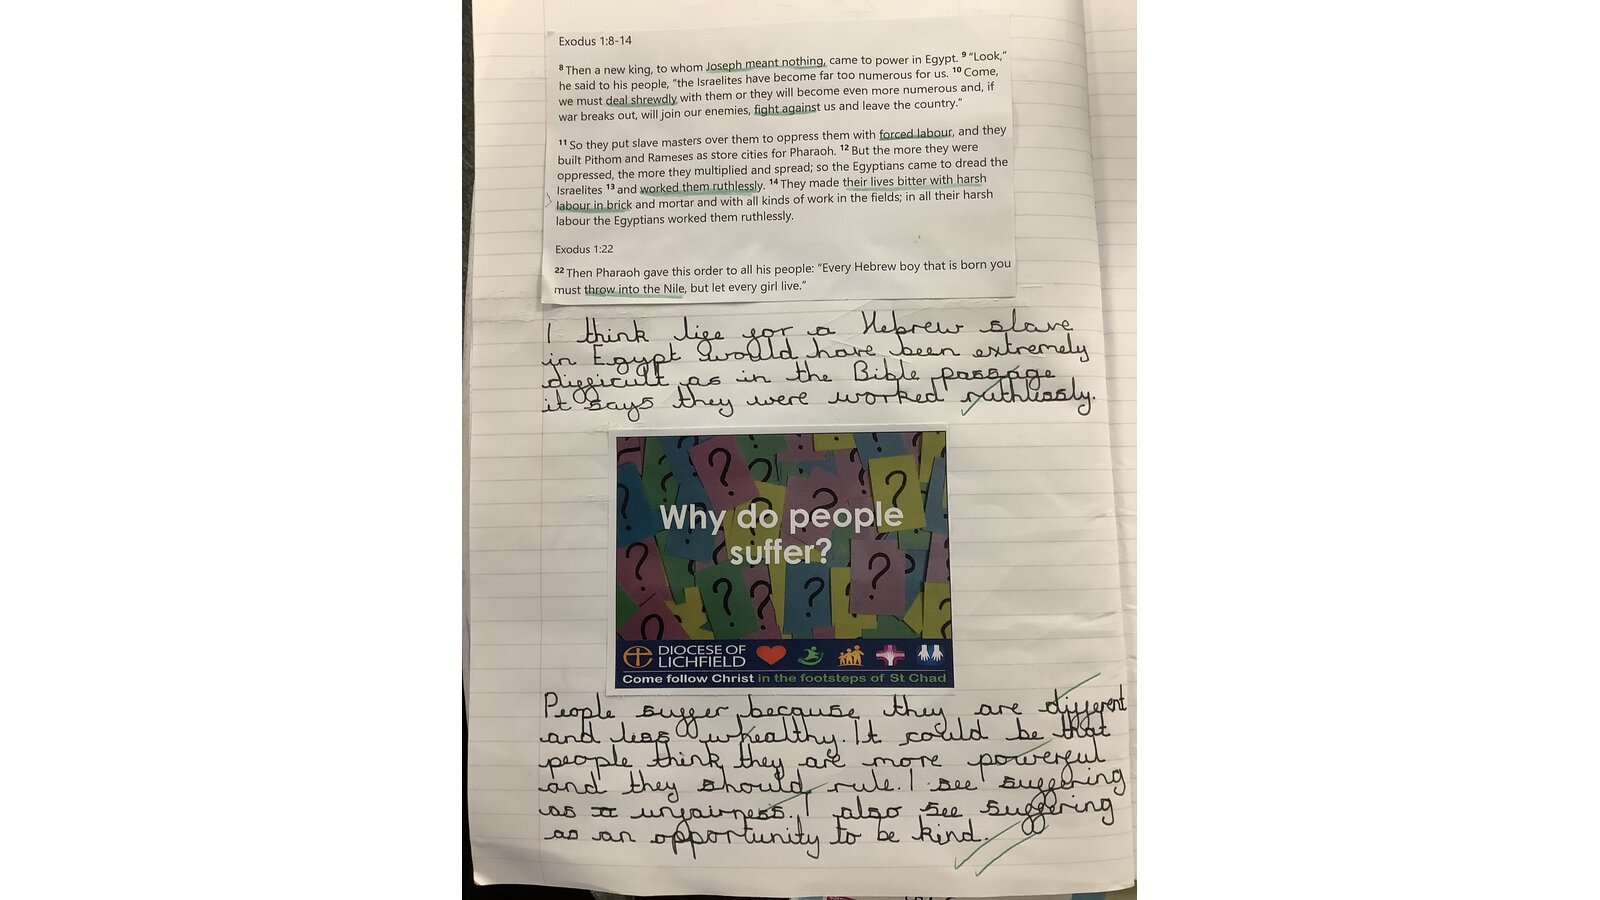 Exodus 1:8-14
⁸ Then a new king, to whom Joseph meant nothing, came to power in Egypt. ⁹ “Look,”
he said to his people, “the Israelites have become far too numerous for us. ¹⁰ Come,
we must deal shrewdly with them or they will become even more numerous and, if
war breaks out, will join our enemies, fight against us and leave the country.”
¹¹ So they put slave masters over them to oppress them with forced labour, and they
built Pithom and Rameses as store cities for Pharaoh. ¹² But the more they were
oppressed, the more they multiplied and spread; so the Egyptians came to dread the
Israelites ¹³ and worked them ruthlessly. ¹⁴ They made their lives bitter with harsh
labour in brick and mortar and with all kinds of work in the fields; in all their harsh
labour the Egyptians worked them ruthlessly.
Exodus 1:22
²² Then Pharaoh gave this order to all his people: “Every Hebrew boy that is born you
must throw into the Nile, but let every girl live.”
I think life for a Hebrew slave
in Egypt would have been extremely
difficult as in the Bible passage
it says they were worked ruthlessly.
Why do people
suffer?
DIOCESE OF
LICHFIELD
Come follow Christ in the footsteps of St Chad
People suffer because they are different
and less whealthy. It could be that
people think they are more powerful
and they should rule. I see suffering
as unfairness. I also see suffering
as an opportunity to be kind.